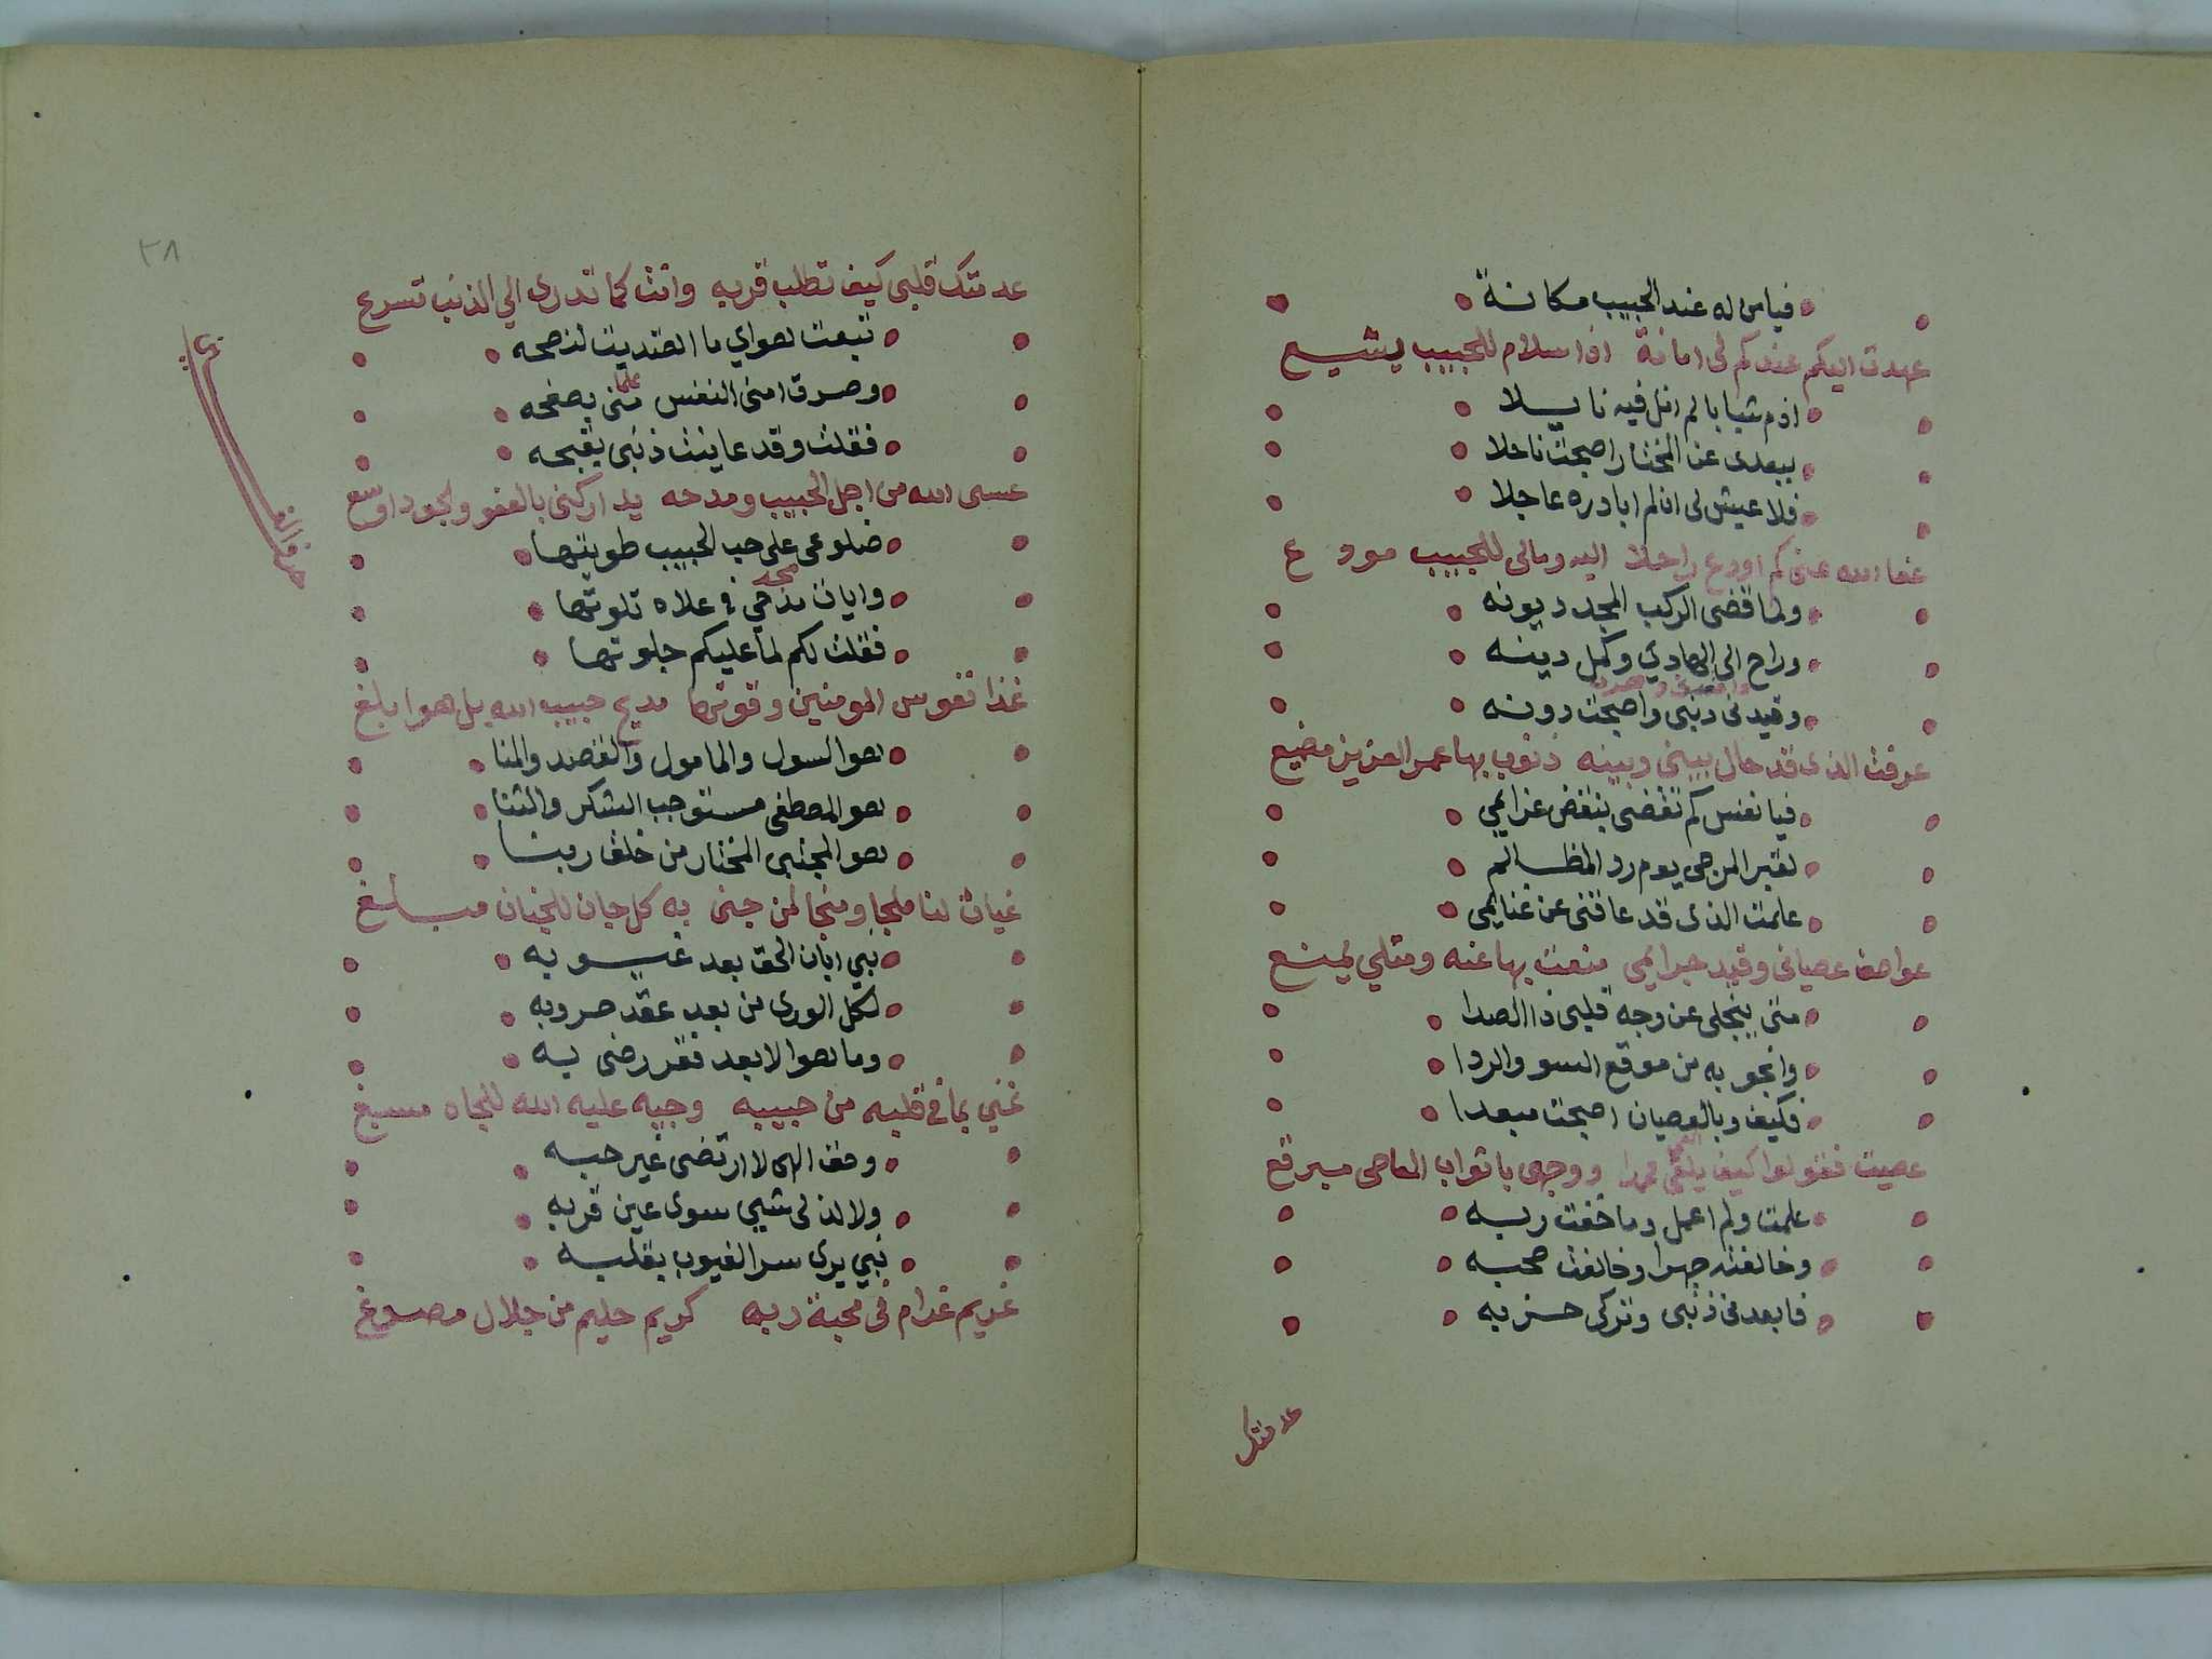 فيامن له عند الحبيب مكانة
عهدت اليكم عندكم لى امانة اذا سلام للحبيب يشيع
اذم شبابا لم انل فيه نايلا
ببعدى عن المختار اصبحت ناحلا
فلا عيش لى ان لم ابادره عاجلا
عفا الله عنى كم اودع راحلا اليه ومالى للحبيب مودع
ولما قضى الركب المجد ديونه
وراح الى الهادي وكمل دينه
وقيدنى ذنبى واصبحت دونه
عرفت الذى قد حال بينى وبينه ذنوب بها عمر العزيز مضيع
فيا نفس كم تقضى بنقض عزايمي
لقبر المرجى يوم رد المظالم
علمت الذى قد عاقنى عن غنايمى
عواصف عصيانى وقيد جرايمى منعت بها عنه ومثلي يمنع
متى ينجلى عن وجه قلبى ذا الصدا
وانجو به من موقع السو والردا
فكيف وبالعصيان اصبحت مبعدا
عصيت فقولوا كيف يلقى محمدا ووجهى باثواب المعاصى مبرقع
علمت ولم اعمل وما خفت ربه
وخالفته جهرا وخالفت صحبه
فابعدنى ذنبى وتركى حزبه
عدمتك
٣٨
عدمتك قلبى كيف تطلب قربه وانت كما تدرى الي الذنب تسرع
تبعت هواي ما اهتديت لنصحه
وصرت امنى النفس علما منى بصفحه
فقلت وقد عاينت ذنبى بقبحه
عسى الله من اجل الحبيب ومدحه يداركنى بالعفو والجود اوسع
ضلوعى على حب الحبيب طويتها
وايات مدحي في علاه تلوتها
فقلت لكم لما عليكم جلوتها
غذا نفوس المومنين وقوتها مديح حبيب الله بل هوا بلغ
هو السول والمامول والقصد والمنا
هو المصطفى مستوجب الشكر والثنا
هو المجتبى المختار من خلق ربنا
غياث لنا ملجا ومنجا لمن جنى به كل جان للجنان مبلغ
نبي ابان الحق بعد غيوبه
لكل الورى من بعد عقد حروبه
وما هو الا بعد فقر رضى به
غني بما فى قلبه من حبيبه وجيه عليه الله للجاه مسبغ
وحق الهى لا ارتضى غير حبه
ولا لذ لى شيي سوى عين قربه
نبي يرى سر الغيوب بقلبه
غريم غرام فى محبة ربه كريم حليم من جلال مصوغ
حرف الغين